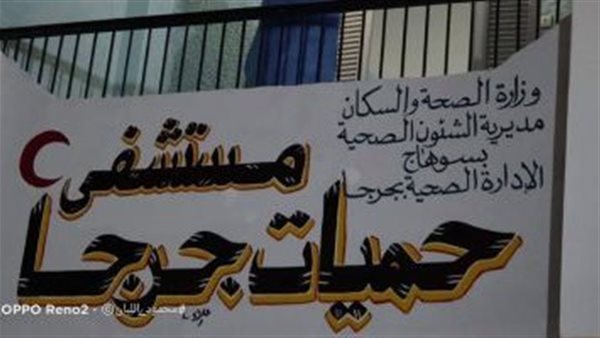 وزارة الصحة والسكان
مديرية الشئون الصحية
بسوهاج
الإدارة الصحية بجرجا
مستشفى
حميات جرجا
OPPO Reno2